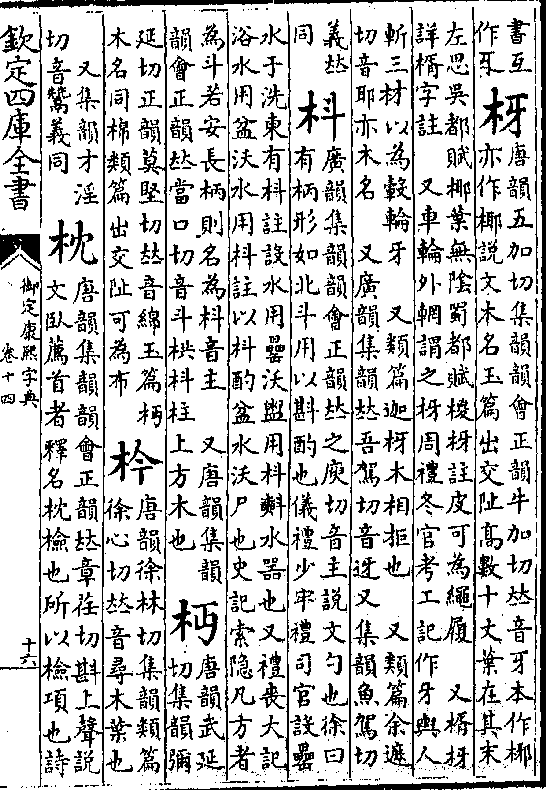 書互
作㸦
枒
唐韻五加切集韻韻會正韻牛加切𠀤音牙本作梛
亦作椰說文木名玉篇出交阯高數十丈葉在其末
左思吳都賦椰葉無陰蜀都賦椶枒註皮可為繩履　又楈枒
詳楈字註　又車輪外輞謂之枒周禮冬官考工記作牙輿人
斬三材以為轂輪牙　又類篇迦枒木相拒也　又類篇余遮
切音耶亦木名　又廣韻集韻𠀤吾駕切音迓又集韻魚駕切
義𠀤
同
枓
廣韻集韻韻會正韻𠀤之庾切音主說文勺也徐曰
有柄形如北斗用以斟酌也儀禮少牢禮司官設罍
水于洗東有枓註設水用罍沃盥用枓㪺水器也又禮喪大記
浴水用盆沃水用枓註以枓酌盆水沃尸也史記索隱凡方者
為斗若安長柄則名為枓音主　又唐韻集韻
韻會正韻𠀤當口切音斗栱枓柱上方木也
杤
唐韻武延
切集韻彌
延切正韻莫堅切𠀤音綿玉篇杤
木名同棉類篇出交阯可為布
枔
唐韻徐林切集韻類篇
徐心切𠀤音尋木葉也
又集韻才淫
切音鷟義同
枕
唐韻集韻韻會正韻𠀤章荏切斟上聲說
文臥薦首者釋名枕檢也所以檢項也詩
欽定四庫全書
御定康熙字典
卷十四
十六